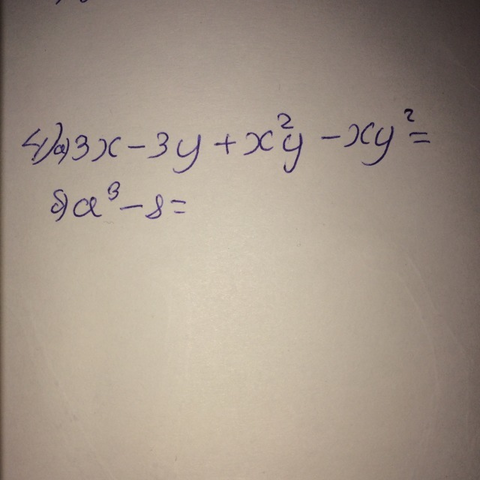 4) а) 3x - 3y + x²y - xy² =
б) a³ - 8 =